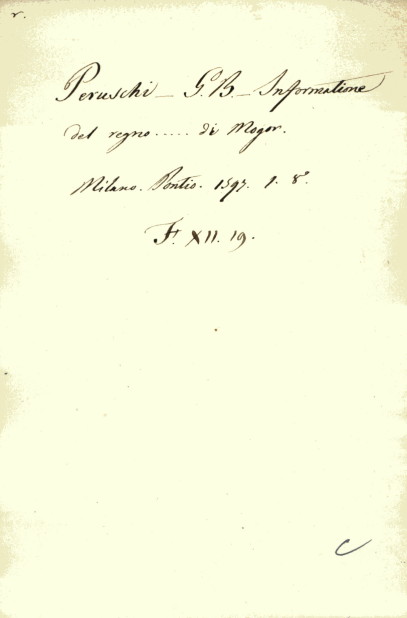 r.
Peruschi _ G. B. _ Informatione
del regno ..... di Mogor.
Milano. Pontio. 1597. 1. 8°
F. XII. 19.
C